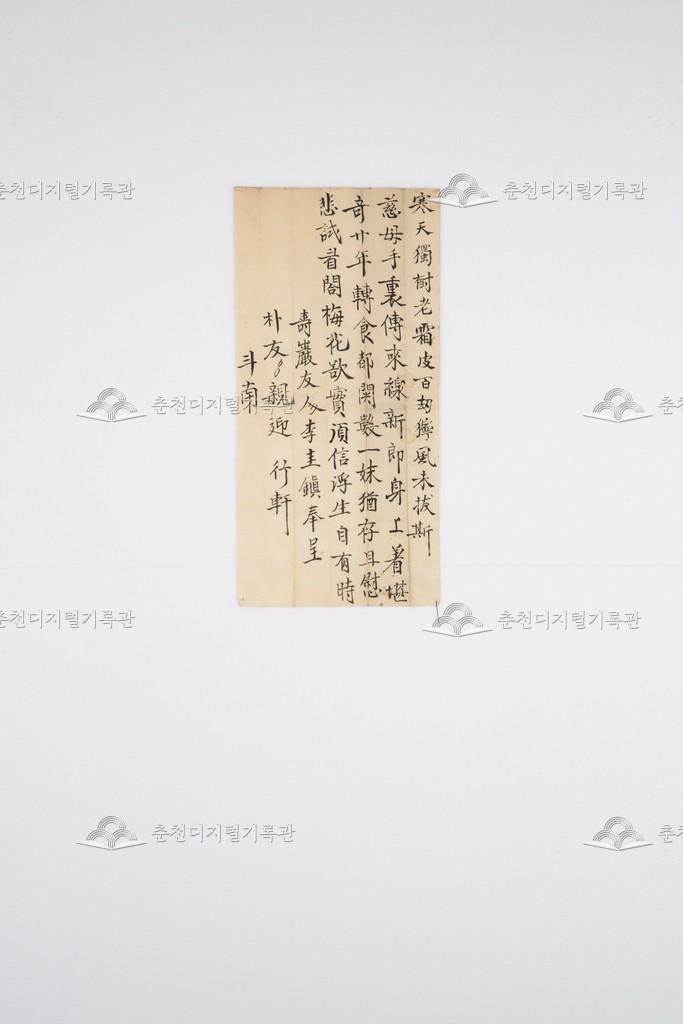 寒天獨樹老霜皮百劫獰風未拔斯
慈母手裏傳來線新郎身上着堪
奇廿年轉食都關數一妹猶存且慰
悲試看閣梅花欲實須信浮生自有時
壽巖友人李圭鎭奉呈
朴友親迎行軒
斗南
춘천디지털기록관
춘천디지털기록관
춘천디지털기록관
춘
춘천디지털기록관
춘천디지털기록관
춘천디지털기록관
춘